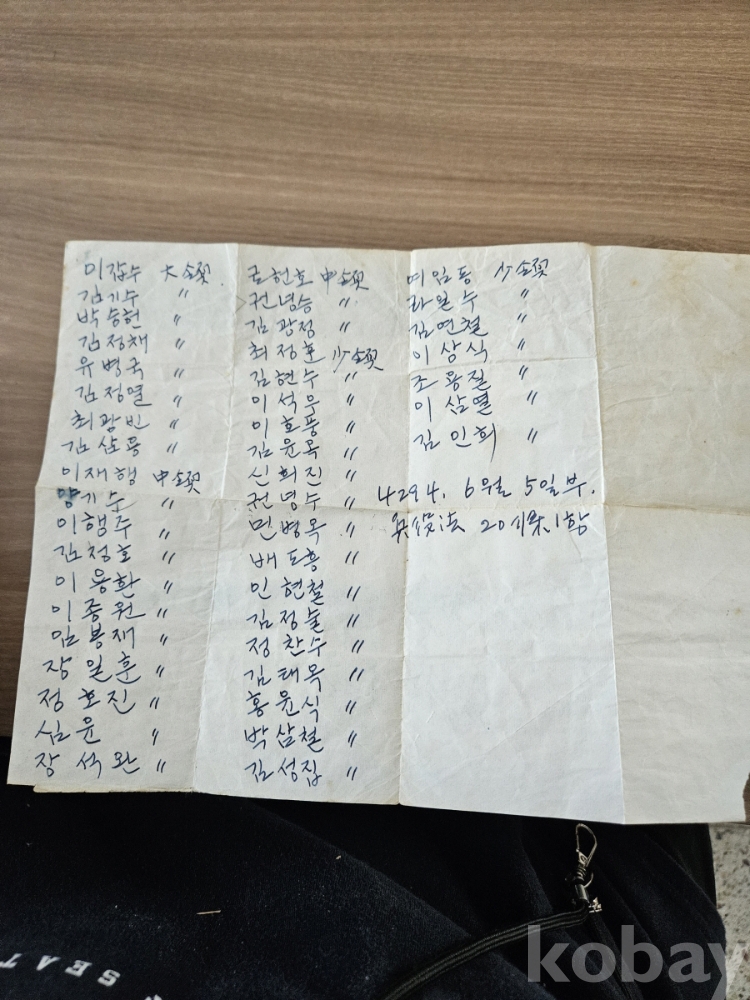 이갑수 大領
김기수 〃
박승현 〃
김정채 〃
유병국 〃
김정열 〃
최광빈 〃
김삼룡 〃
이재행 中領
양기순 〃
이행주 〃
김정호 〃
이용환 〃
이종원 〃
임봉재 〃
장일훈 〃
정호진 〃
심윤 〃
장석완 〃
현호 中領
권녕승 〃
김광정 〃
최정훈 少領
김현수 〃
이석우 〃
이호풍 〃
김윤옥 〃
신희진 〃
권녕수 〃
민병옥 〃
배도흥 〃
인현철 〃
김정눌 〃
정찬수 〃
김태옥 〃
홍윤식 〃
박삼철 〃
김성집 〃
少領
〃
김연철 〃
이상식 〃
조용질 〃
이삼열 〃
김인희 〃
4294. 6월 5일부.
兵役法 20條 1항
SEAT
kobay